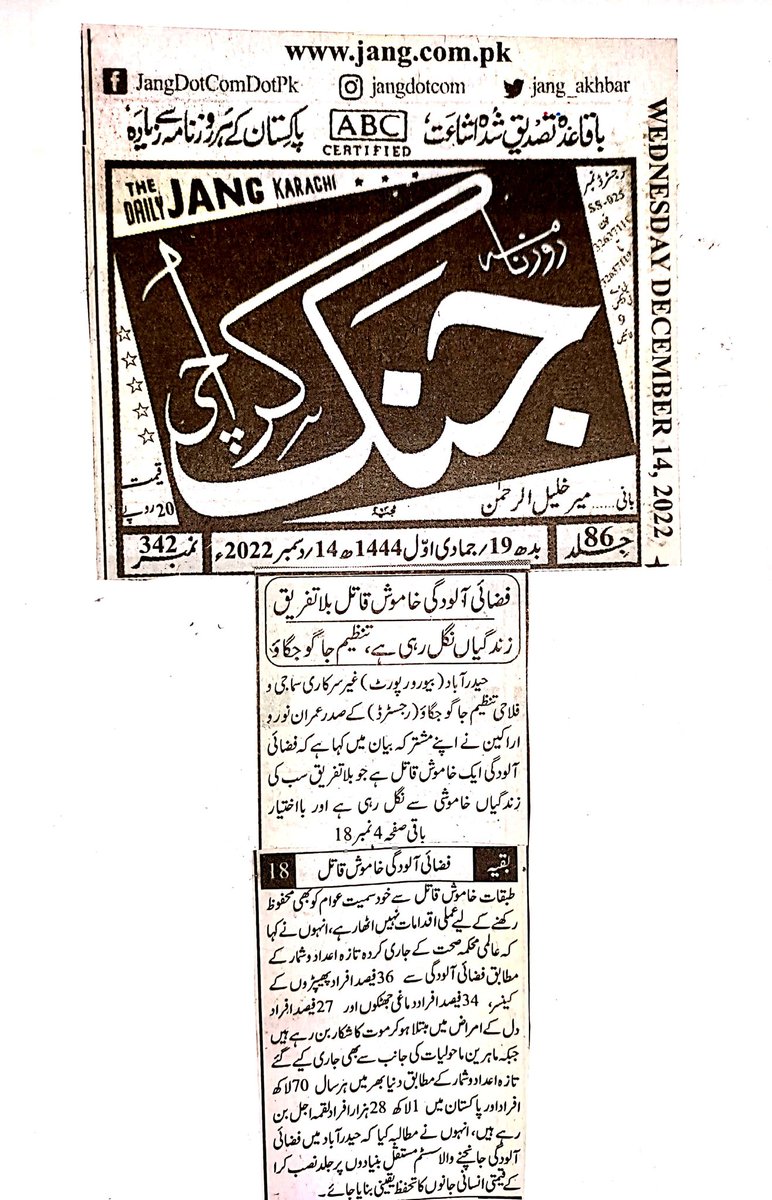 www.jang.com.pk
JangDotComDotPk jangdotcom jang_akhbar
باقاعدہ تصدیق شدہ اشاعت، ABC CERTIFIED پاکستان کے ہر روزنامہ سے زیادہ
WEDNESDAY DECEMBER 14, 2022
THE DAILY JANG KARACHI
رجسٹرڈ نمبر
SS-025
روزنامہ
جنگ
کراچی
قیمت
20 روپے
بانی ...... میر خلیل الرحمٰن
جلد 86 بدھ 19/ جمادی اوّل 1444ھ 14/ دسمبر 2022ء نمبر 342
فضائی آلودگی خاموش قاتل بلا تفریق
زندگیاں نگل رہی ہے، تنظیم جاگو جگاؤ
حیدرآباد (بیورو رپورٹ) غیر سرکاری سماجی و
فلاحی تنظیم جاگو جگاؤ (رجسٹرڈ) کے صدر عمران نور و
اراکین نے اپنے مشترکہ بیان میں کہا ہے کہ فضائی
آلودگی ایک خاموش قاتل ہے جو بلا تفریق سب کی
زندگیاں خاموشی سے نگل رہی ہے اور بااختیار
باقی صفحہ 4 نمبر 18
بقیہ فضائی آلودگی خاموش قاتل 18
طبقات خاموش قاتل سے خود سمیت عوام کو بھی محفوظ
رکھنے کے لیے عملی اقدامات نہیں اٹھا رہے، انہوں نے کہا
کہ عالمی محکمہ صحت کے جاری کردہ تازہ اعداد و شمار کے
مطابق فضائی آلودگی سے 36 فیصد افراد پھیپڑوں کے
کینسر، 34 فیصد افراد دماغی جھٹکوں اور 27 فیصد افراد
دل کے امراض میں مبتلا ہو کر موت کا شکار بن رہے ہیں
جبکہ ماہرین ماحولیات کی جانب سے بھی جاری کیے گئے
تازہ اعداد و شمار کے مطابق دنیا بھر میں ہر سال 70 لاکھ
افراد اور پاکستان میں 1 لاکھ 28 ہزار افراد لقمہ اجل بن
رہے ہیں، انہوں نے مطالبہ کیا کہ حیدرآباد میں فضائی
آلودگی جانچنے والا سسٹم مستقل بنیادوں پر جلد نصب کرا
کے قیمتی انسانی جانوں کا تحفظ یقینی بنایا جائے۔